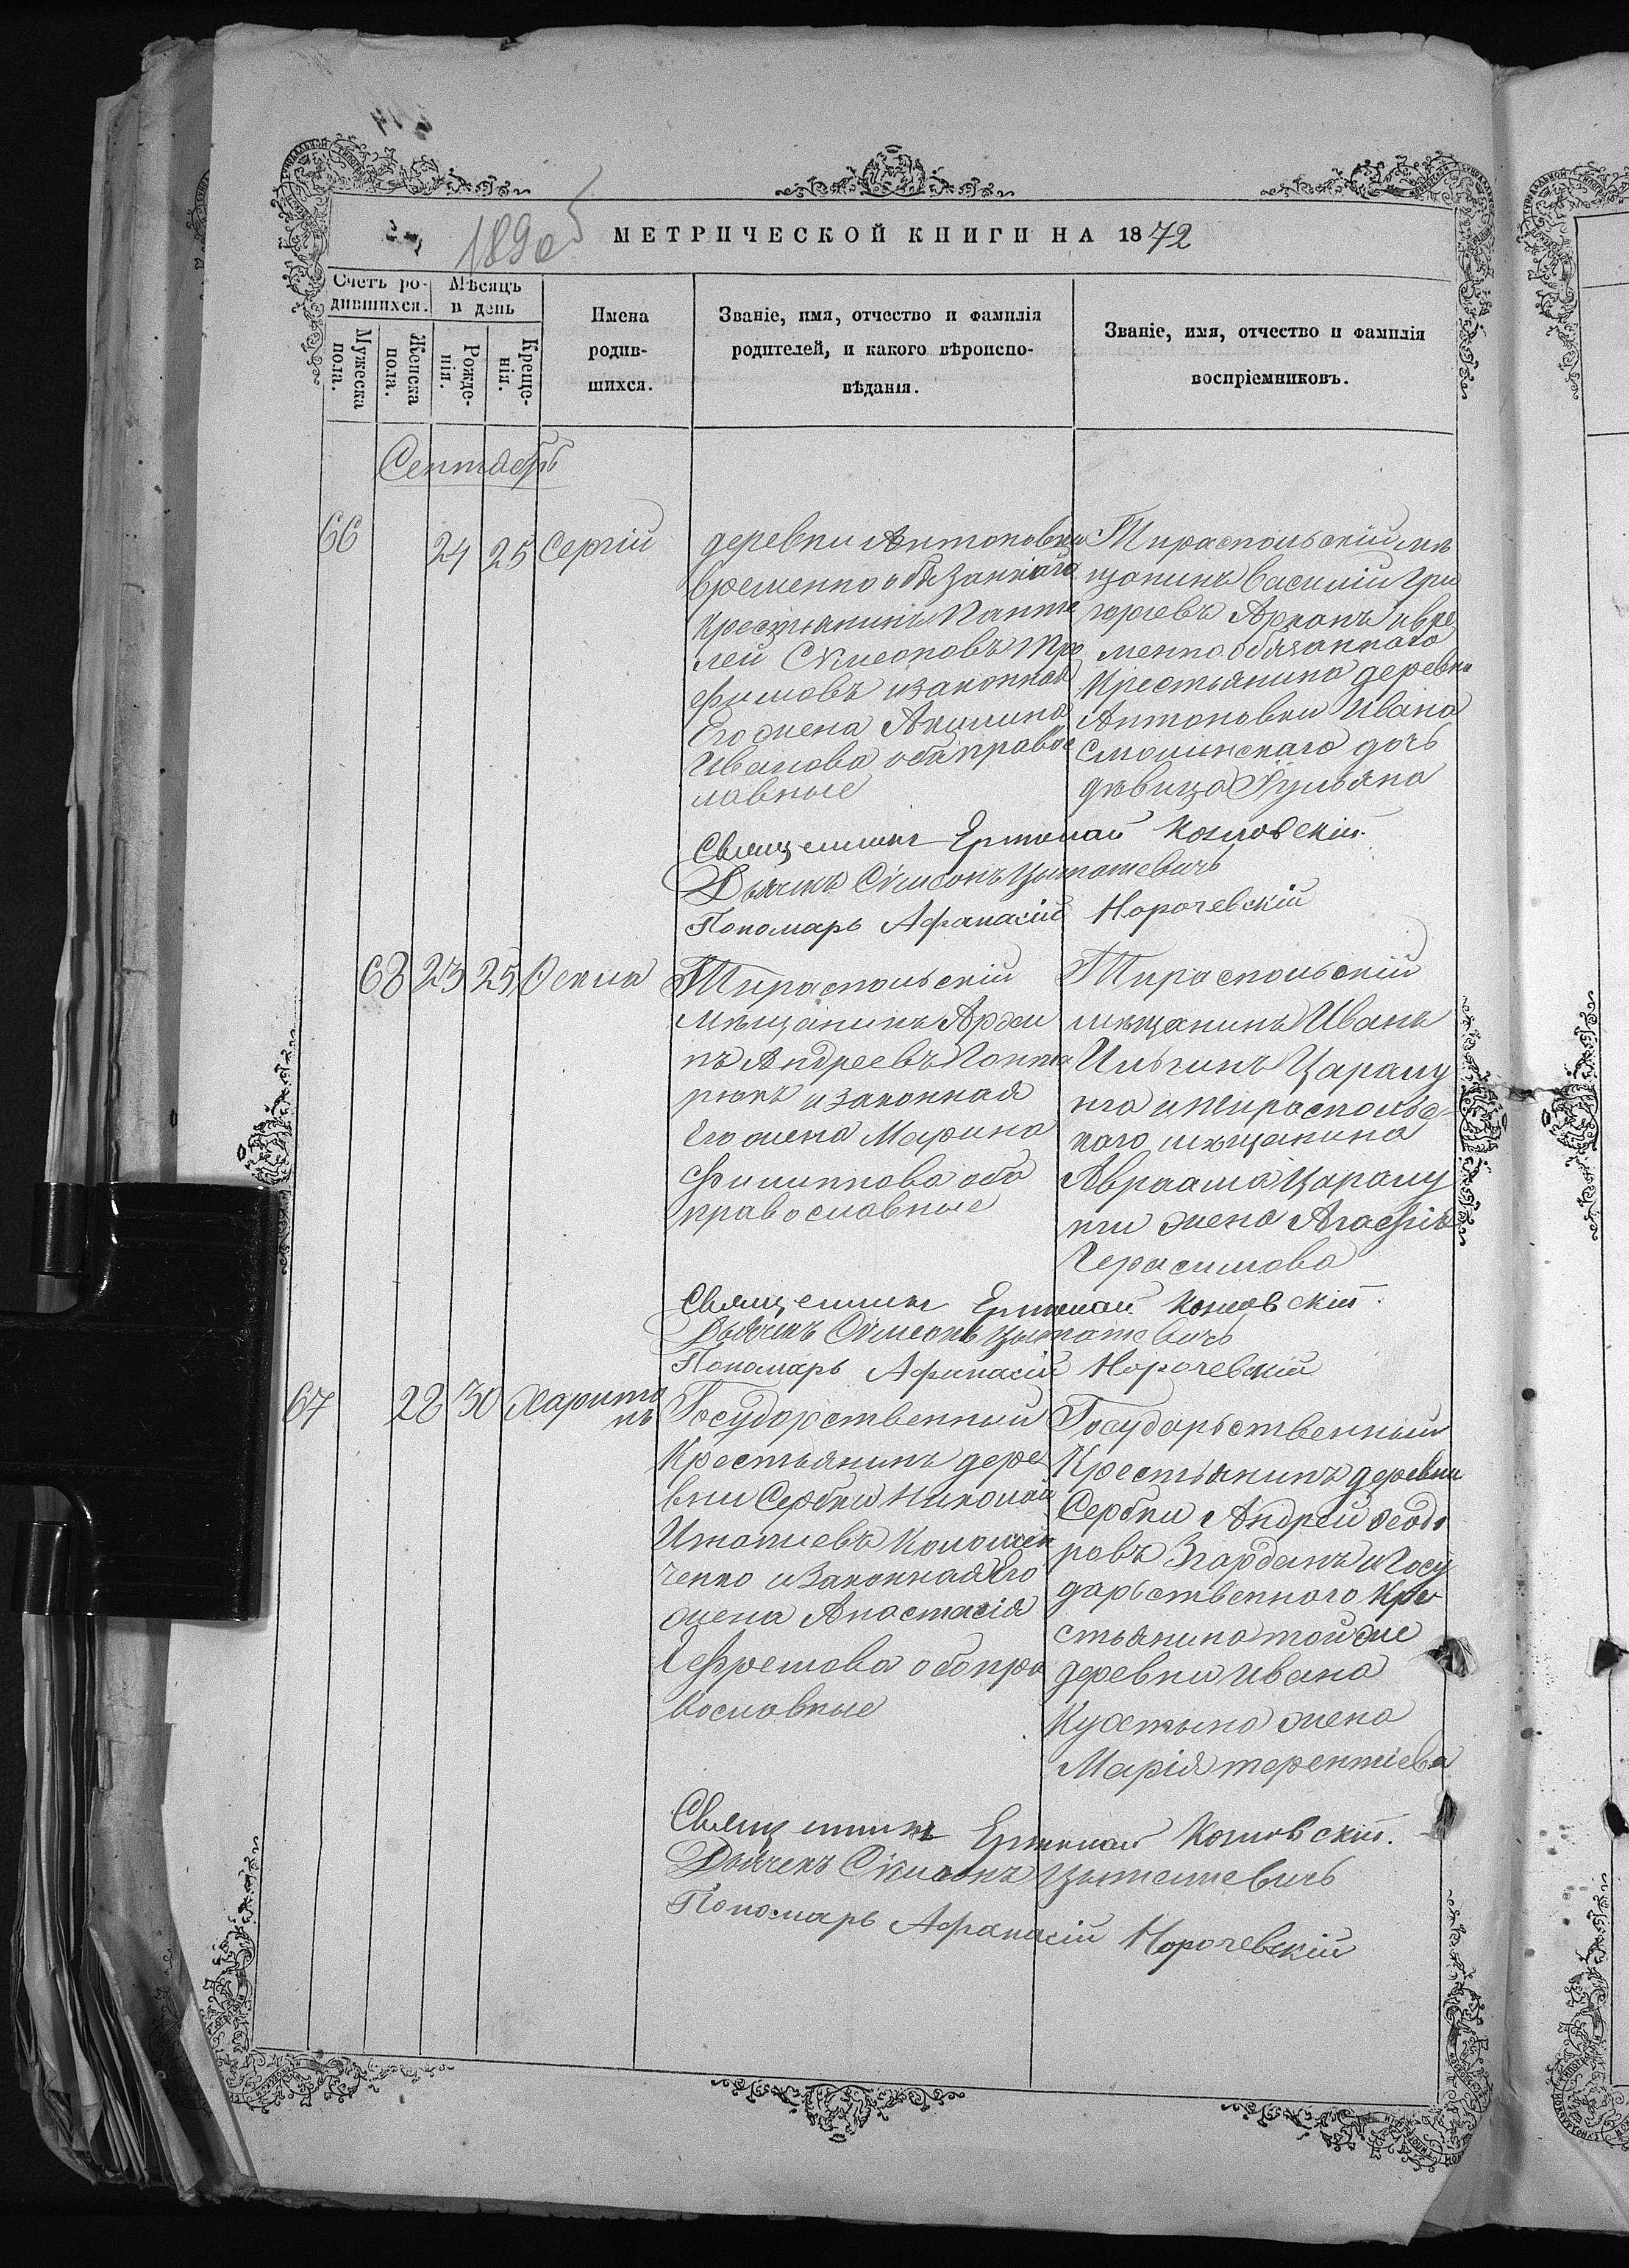 1890
МЕТРИЧЕСКОЙ КНИГИ НА 1872
Счетъ ро-
дившихся.
Мѣсяцъ
и день
Мужеска
пола.
Женска
пола.
Рожде-
нія.
Креще-
нія.
Имена
родив-
шихся.
Званіе, имя, отчество и фамилія
родителей, и какого вѣроиспо-
вѣданія.
Званіе, имя, отчество и фамилія
воспріемниковъ.
Сентябрь
66
24
25
Сергій
деревни Антоновки
временно обязанаго
Крестьянинъ Панте
лей Сѵмеоновъ Тро
фимовъ изаконная
Его жена Акилина
Иванова оба правос
лавные
Тираспольскій мѣ
щанинъ Василій Гри
горьевъ Арканъ и вре
менно обязаннаго
Крестьянина деревни
Антоновки Ивана
Смолинскаго дочь
дѣвица Іульяна
Священникъ Ермолай Козловскій.
Дьячекъ Сѵмеонъ
Пономарь Афанасій Норочевскій
68
23
25
Ѳекла
Тираспольскій
мѣщанинъ
Андреевъ
изаконная
Его жена Марина
Филиппова оба
православные
Тираспольскій
мѣщанинъ Иванъ
Ильинъ Царалу
нга итираспольс-
каго мѣщанина
Авраама Царалу
нги жена Агафія
Герасимова
Священникъ Ермолай Козловскій.
Дьячекъ Сѵмеонъ
Пономарь Афанасій Норочевскій
67
28
30
Харито
нъ
Государственный
Крестьянинъ дере
вни Сербки Николай
Игнатіевъ Коломей
ченко изаконная Его
жена Анастасія
Ефремова оба пра
вославные
Государьственный
Крестьянинъ деревни
Сербки Андрей Ѳеодо
ровъ иГосу
дарьственнаго Кре
стьянина той же
деревни Ивана
жена
Марія терентіева
Священникъ Ермолай Козловскій.
Дьячекъ Сѵмеонъ
Пономарь Афанасій Норочевскій